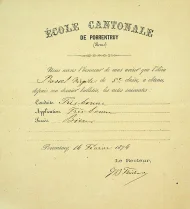 ÉCOLE CANTONALE
DE PORRENTRUY
(Berne)
Nous avons l'honneur de vous aviser que l'élève
de classe, a obtenu,
depuis son dernier bulletin, les notes suivantes :
Conduite Très-bonne
Application Très-bonne
Succès
Porrentruy, 16 Février 1876
Le Recteur,